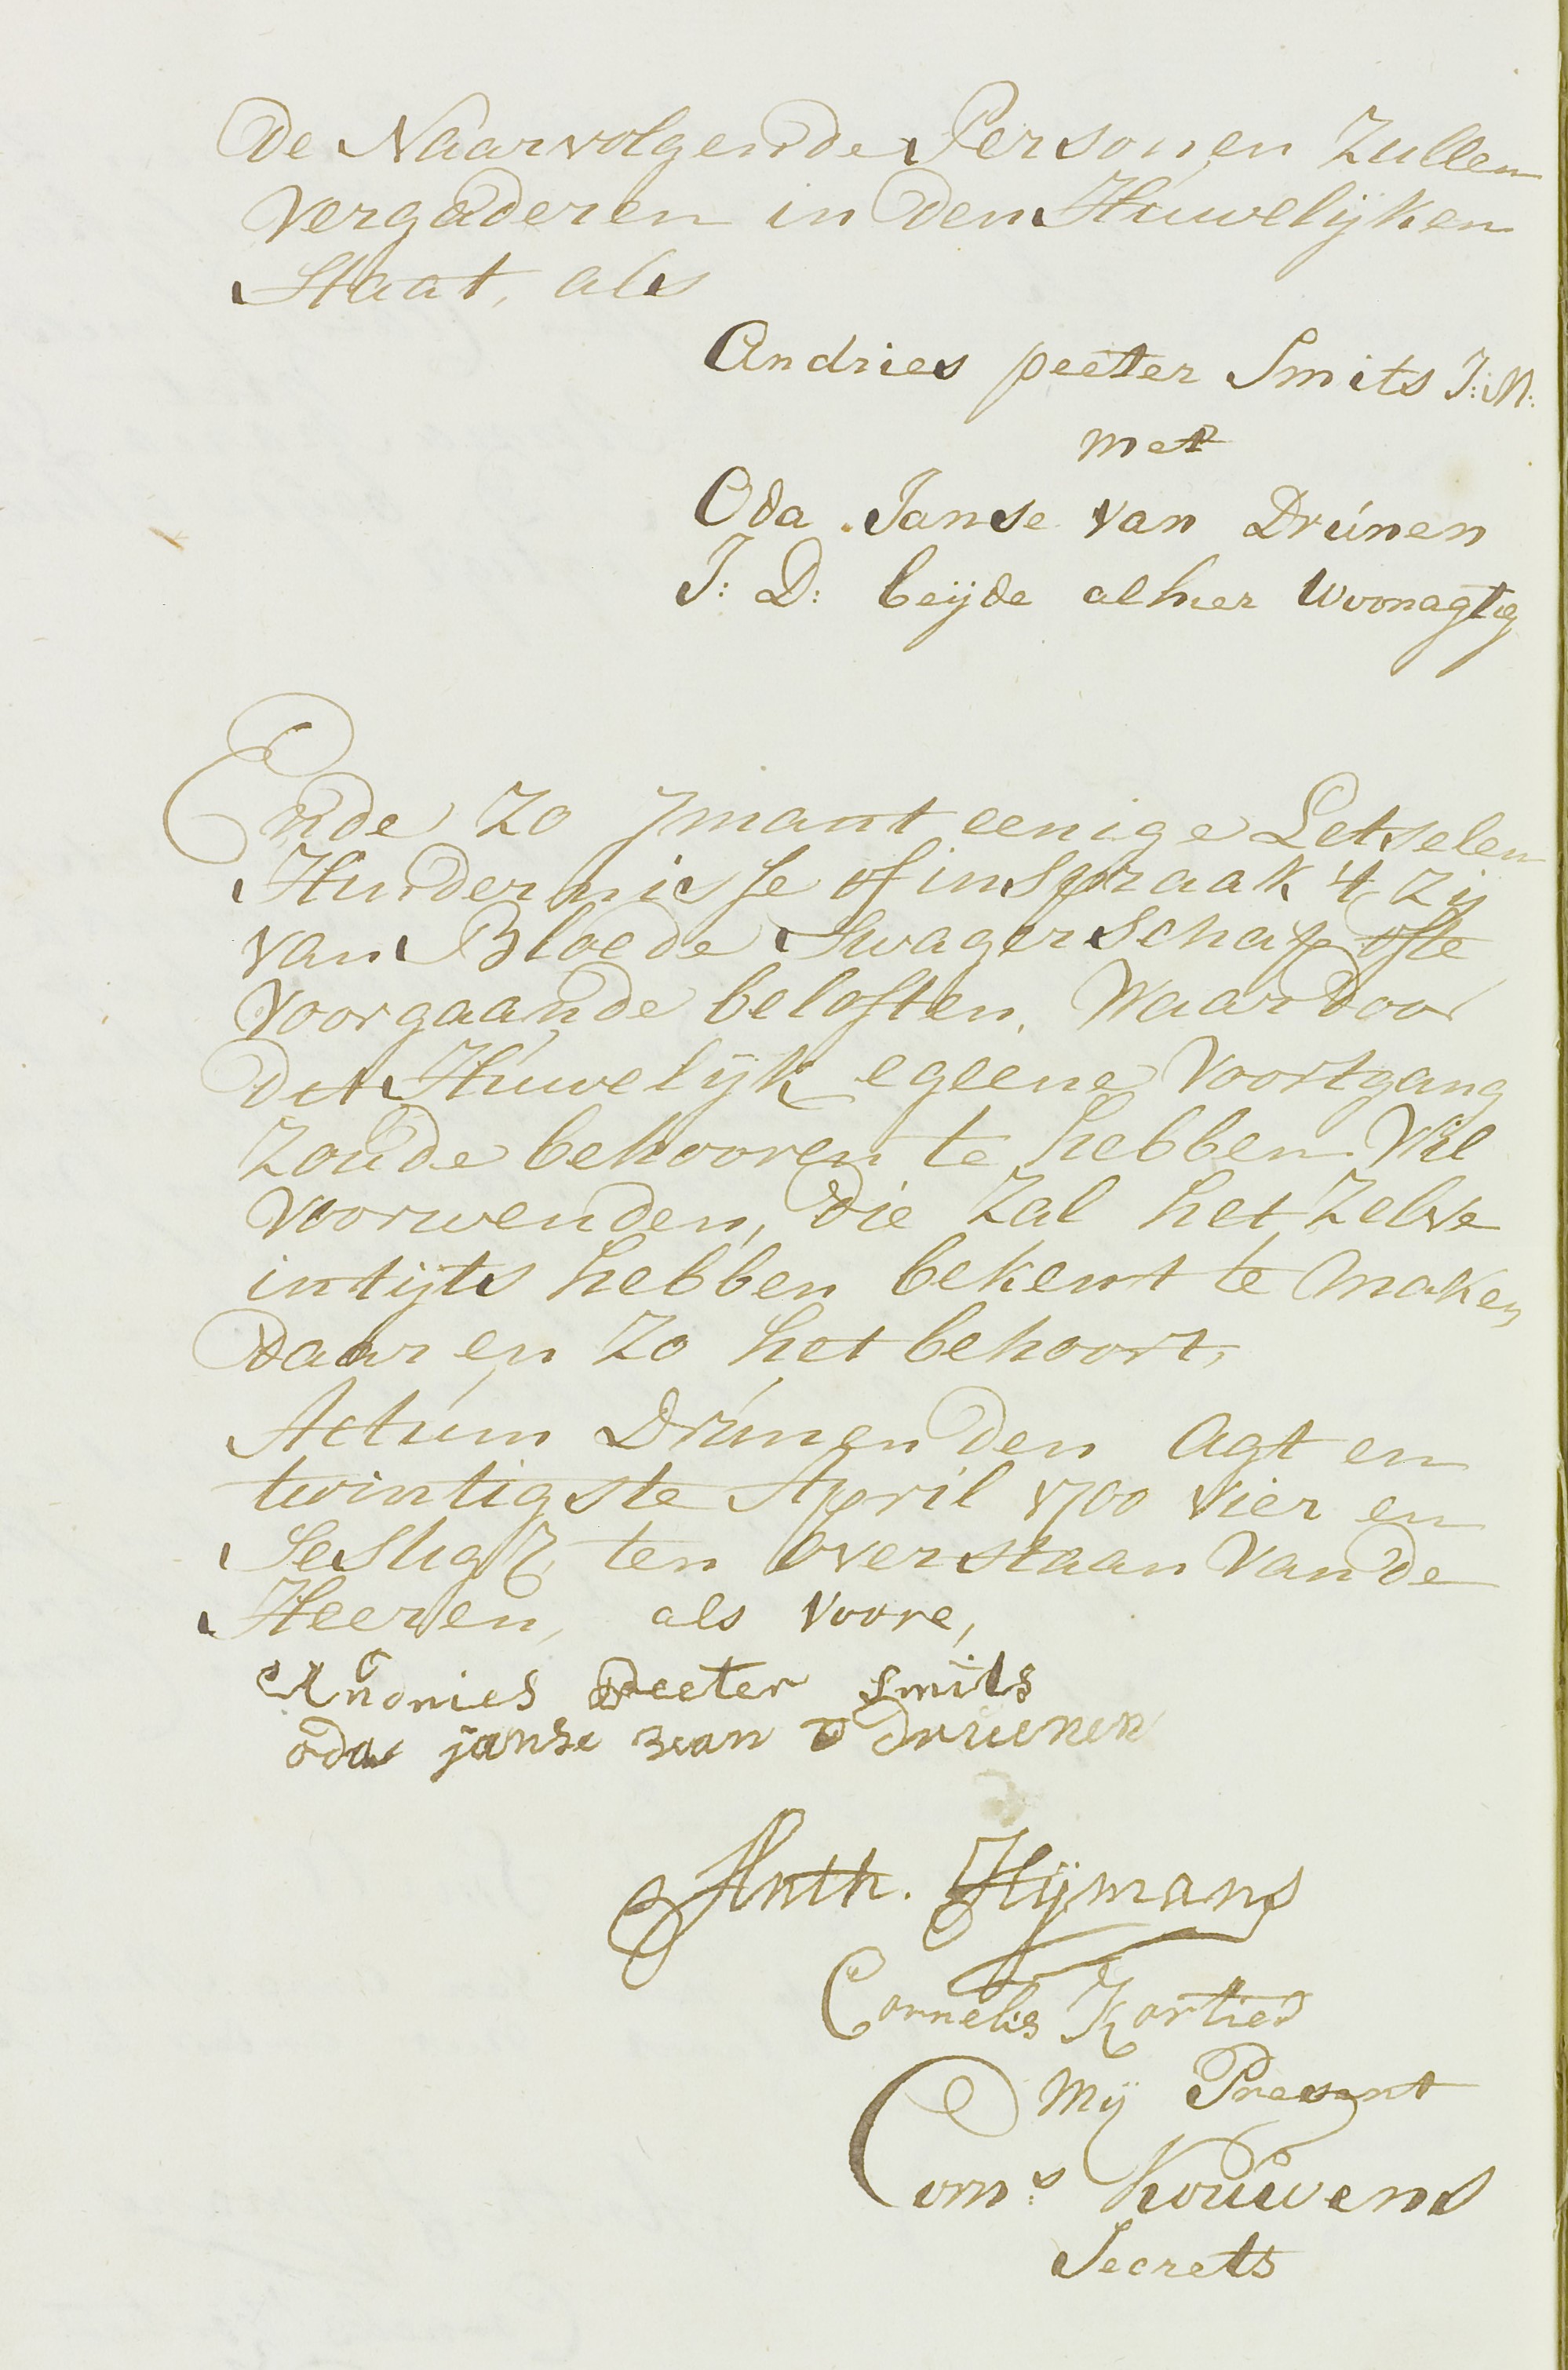 De Naarvolgende Personen Zullen
Vergaderen in den Huwelijken
Staat, als
Andries peeter Smits J:M:
met
Oda Janse van Drúnen
J: D: beijde alhier woonagtig
Ende Zo Jmant eenige Letselen
Hindernisse of inspraak 't Zij
van Bloede Swagerschap ofte
Voorgaande beloften, Waardoor
dit Húwelijk egeene Voortgang
Zoude behooren te hebben Wil
Voorwenden, die Zal het Zelve
intijts hebben bekent te maken
daar en Zo het behoort,
Actúm Drúnen den Agt en
twintigste April 1700 vier en
Sestig, ten overstaan van de
Heeren, als voore,
Andries Peeter smits
oda janse van druenen
Anth. Hijmans
Cornelis Kortie
Mij Present
Corns: Kouwens
Secrets